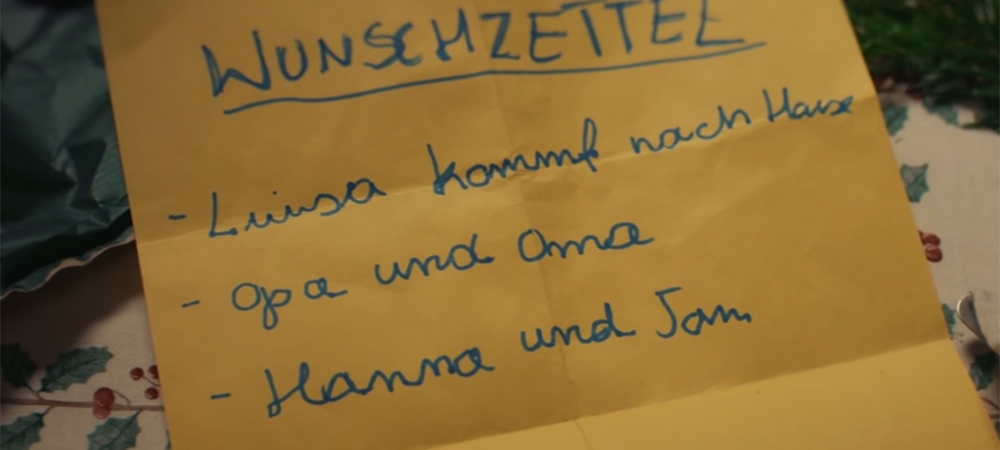 WUNSCHZETTEL
- Luisa kommt nach Hause
- Opa und Oma
- Hanna und Tom